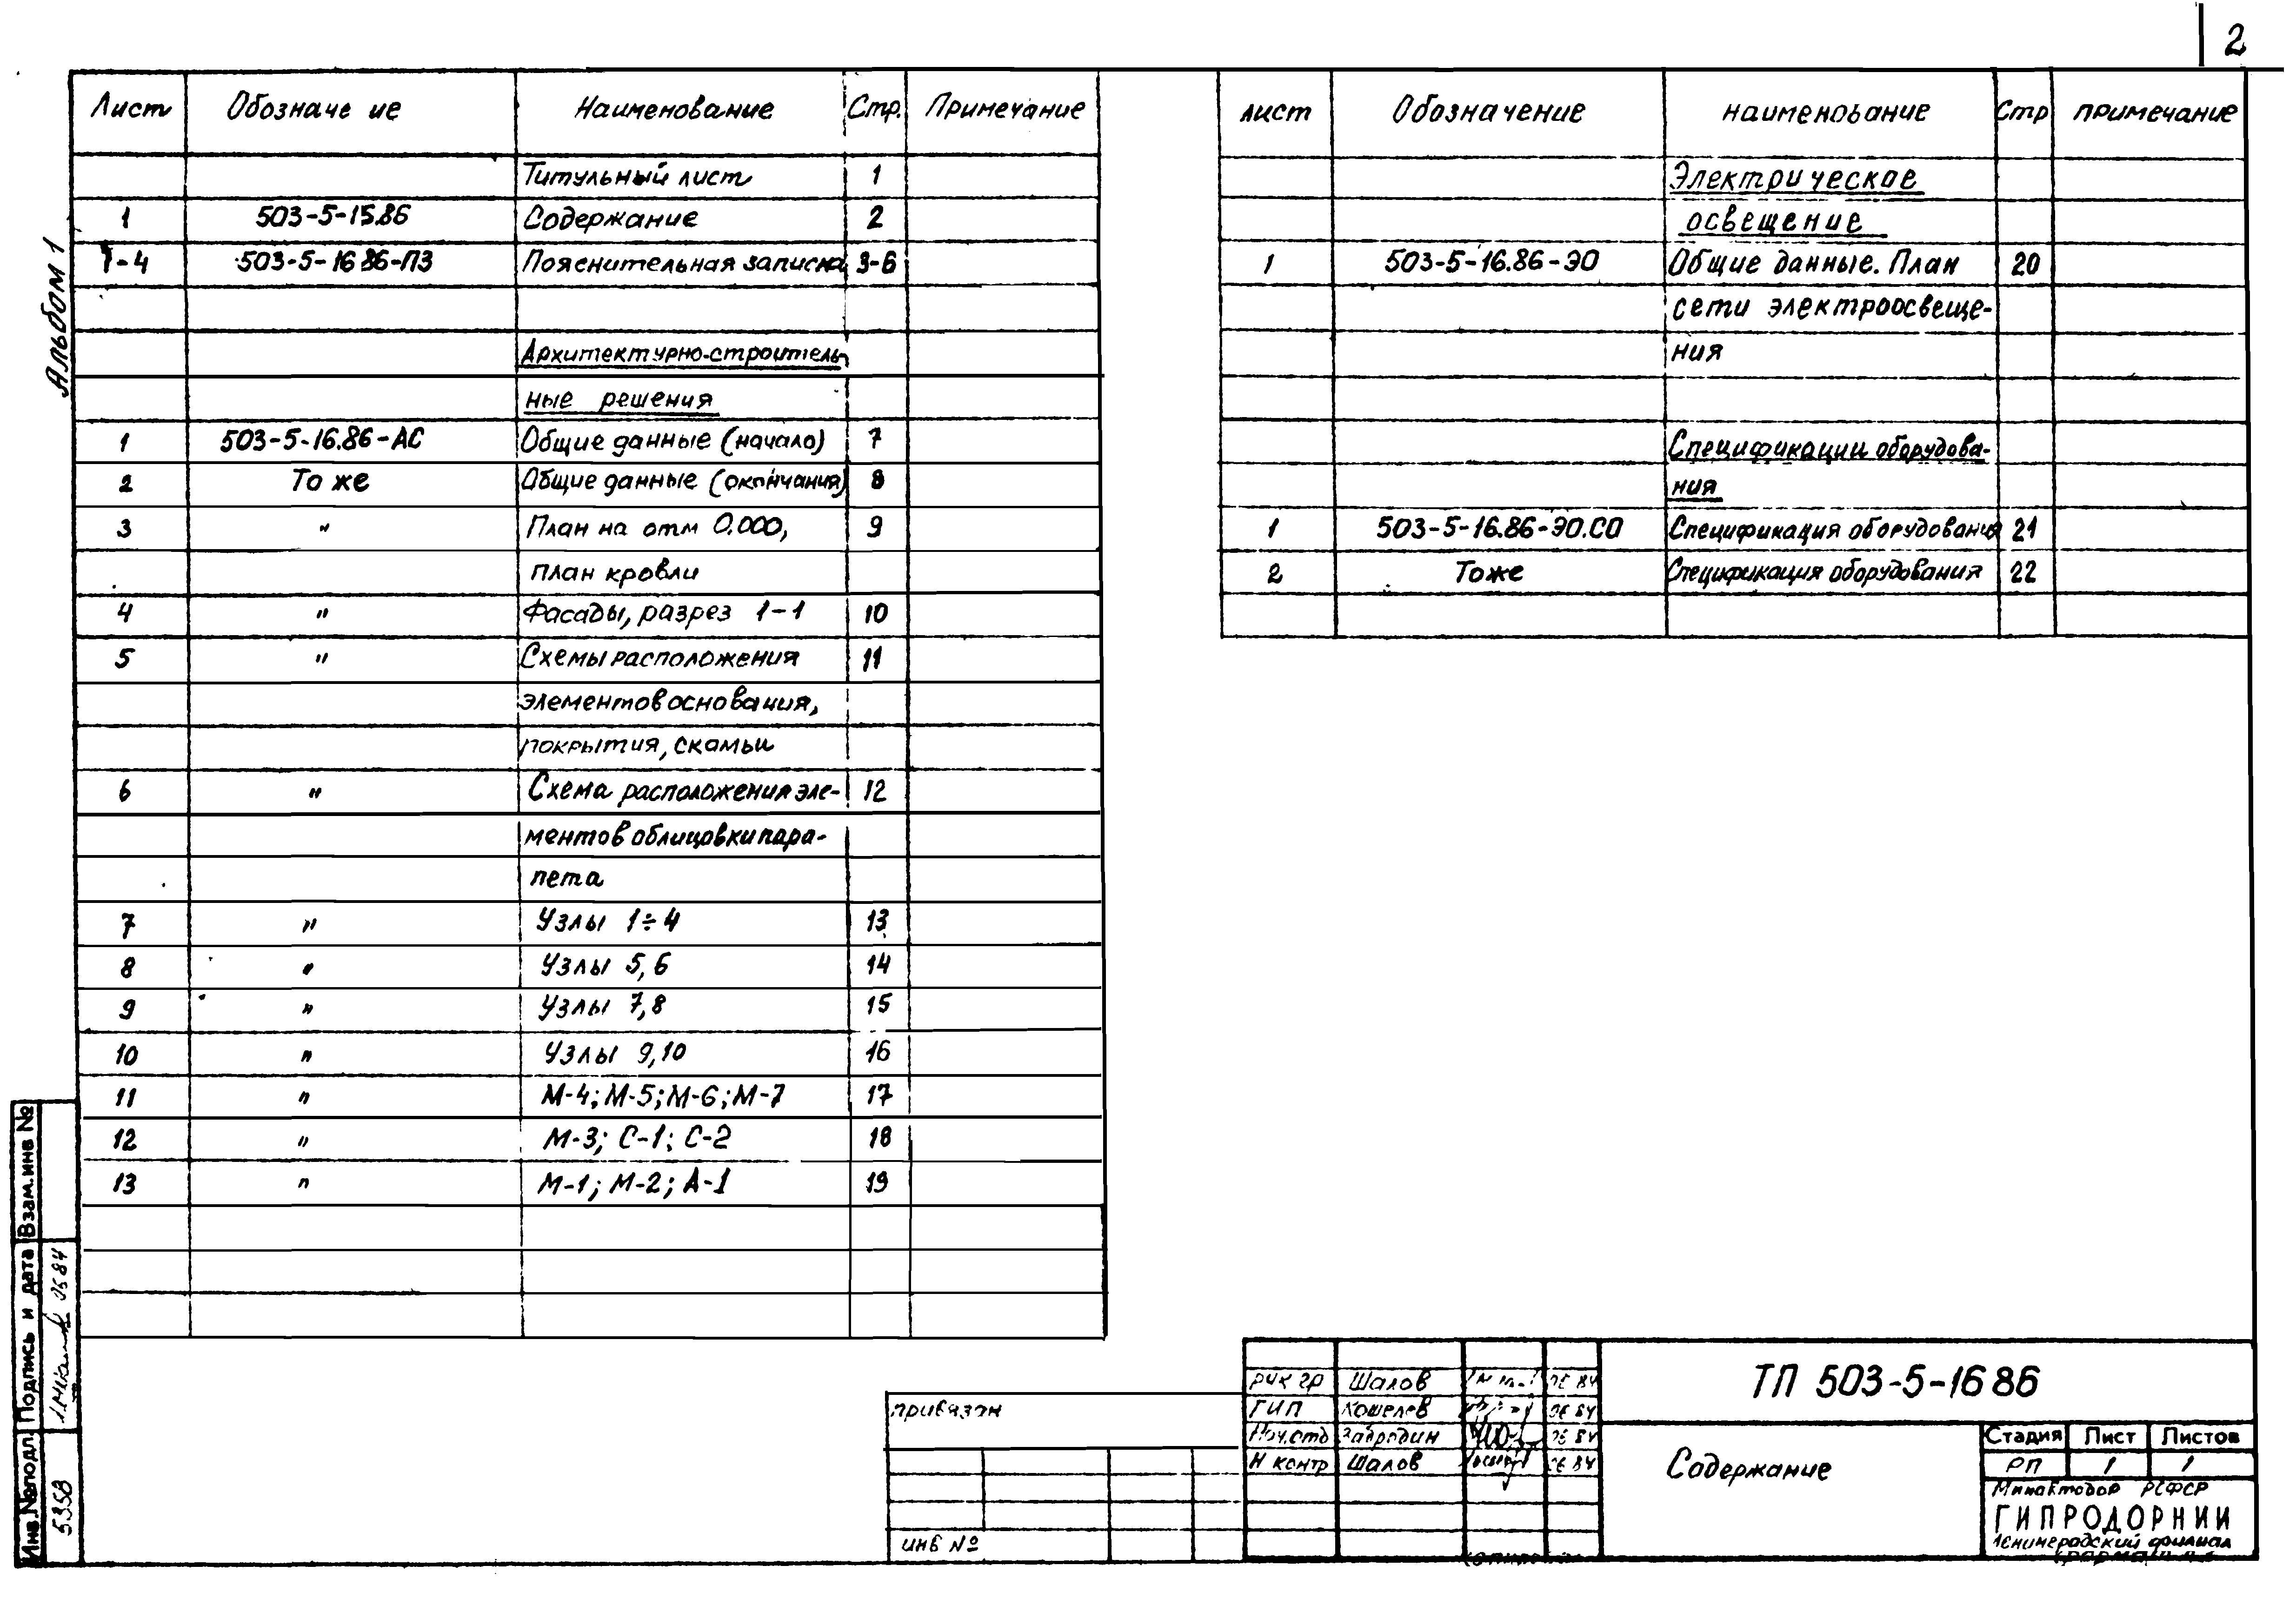 2
Альбом 1
Лист Обозначе ие Наименование Стр. Примечание
Титульный лист 1
1 503-5-15.86 Содержание 2
1-4 503-5-16 86-ПЗ Пояснительная записка 3-6
Архитектурно-строитель
ные решения
1 503-5-16.86-АС Общие данные (начало) 7
2 То же Общие данные (окончания) 8
3 " План на отм 0.000, 9
план кровли
4 " Фасады, разрез 1-1 10
5 " Схемы расположения 11
элементов основания,
покрытия, скамьи
6 " Схема расположения эле- 12
ментов облицовки пара-
пета
7 " Узлы 1÷4 13
8 " Узлы 5,6 14
9 " Узлы 7,8 15
10 " Узлы 9,10 16
11 " М-4; М-5; М-6; М-7 17
12 " М-3; С-1; С-2 18
13 " М-1; М-2; А-1 19
лист Обозначение наименование Стр примечание
Электрическое
освещение
1 503-5-16.86-ЭО Общие данные. План 20
сети электроосвеще-
ния
Спецификации оборудова-
ния
1 503-5-16.86-ЭО.СО Спецификация оборудования 21
2 То же Спецификация оборудования 22
Взам.инв №
Подпись и дата
Инв.№подл. 5358
привязан
инв №
рук гр Шалов 06 84
ГИП Кошелев 06 84
Нач.отд Завродин 06 84
Н контр Шалов 06 84
ТП 503-5-16 86
Содержание
Стадия Лист Листов
РП 1 1
Минавтодор РСФСР
ГИПРОДОРНИИ
Ленинградский филиал